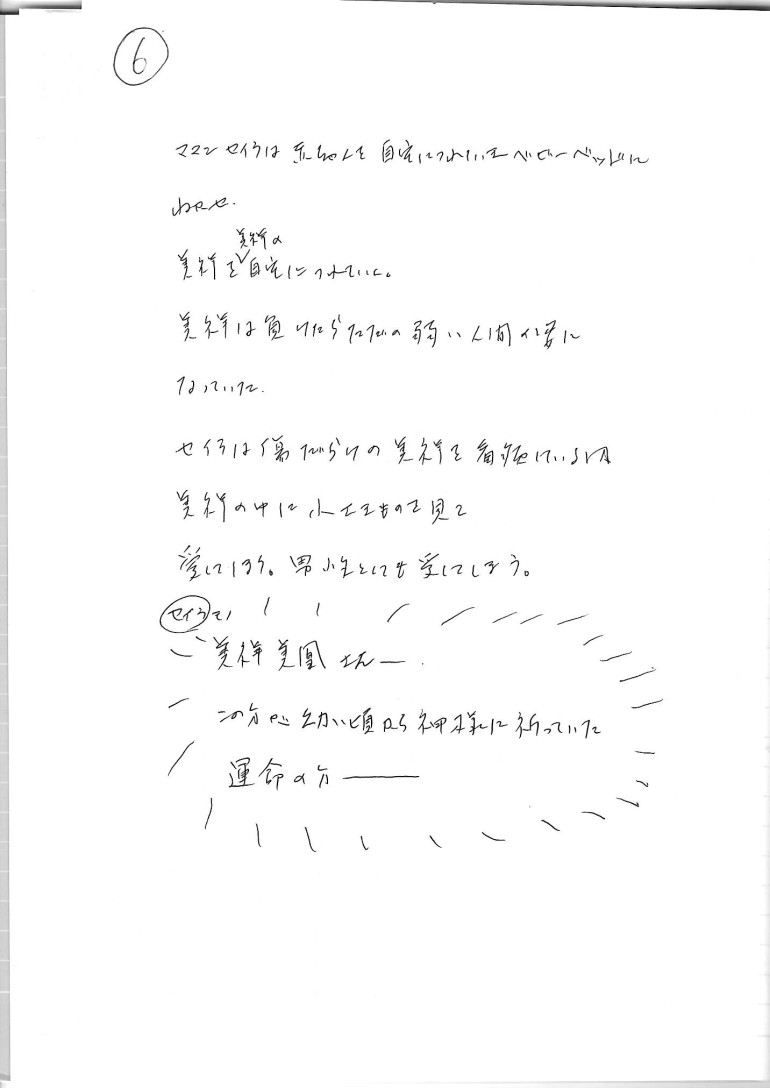 ⑥
ママン セイラは 赤ちゃんを 自宅につれていき ベビーベッドに
ねかせ.
美祥の
美祥を 自宅につれていく。
美祥は負けたらただの弱い人間の姿に
なっていた.
セイラは傷だらけの美祥を看病している内
美祥の中に を見て
愛してしまう。男性としても愛してしまう。
セイラ
美祥美凰さん―.
この方が幼い頃から神様に祈っていた
運命の方――